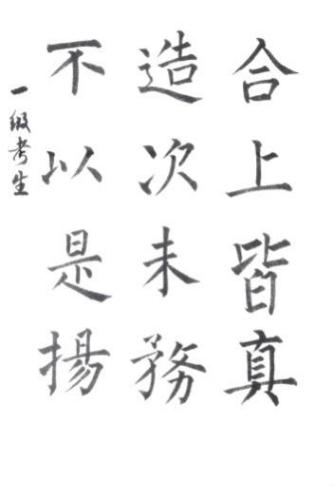 合上皆真
造次未務
不以是揚
一級考生